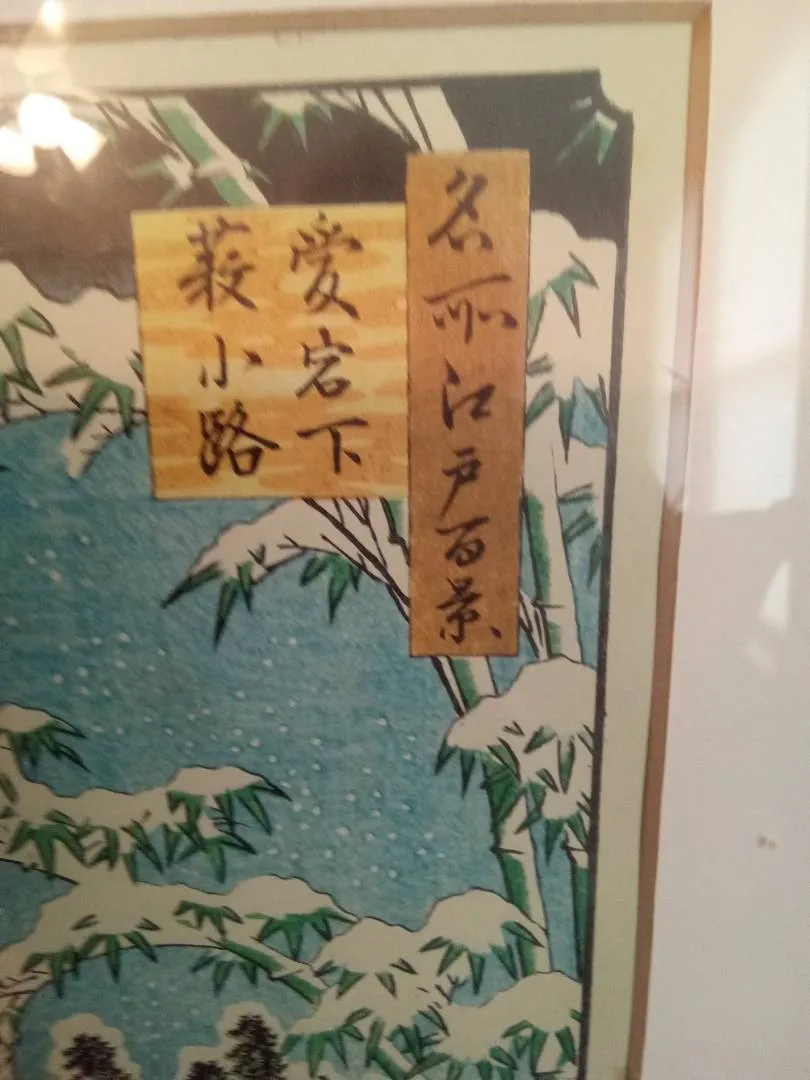 名所江戸百景
愛宕下
薮小路